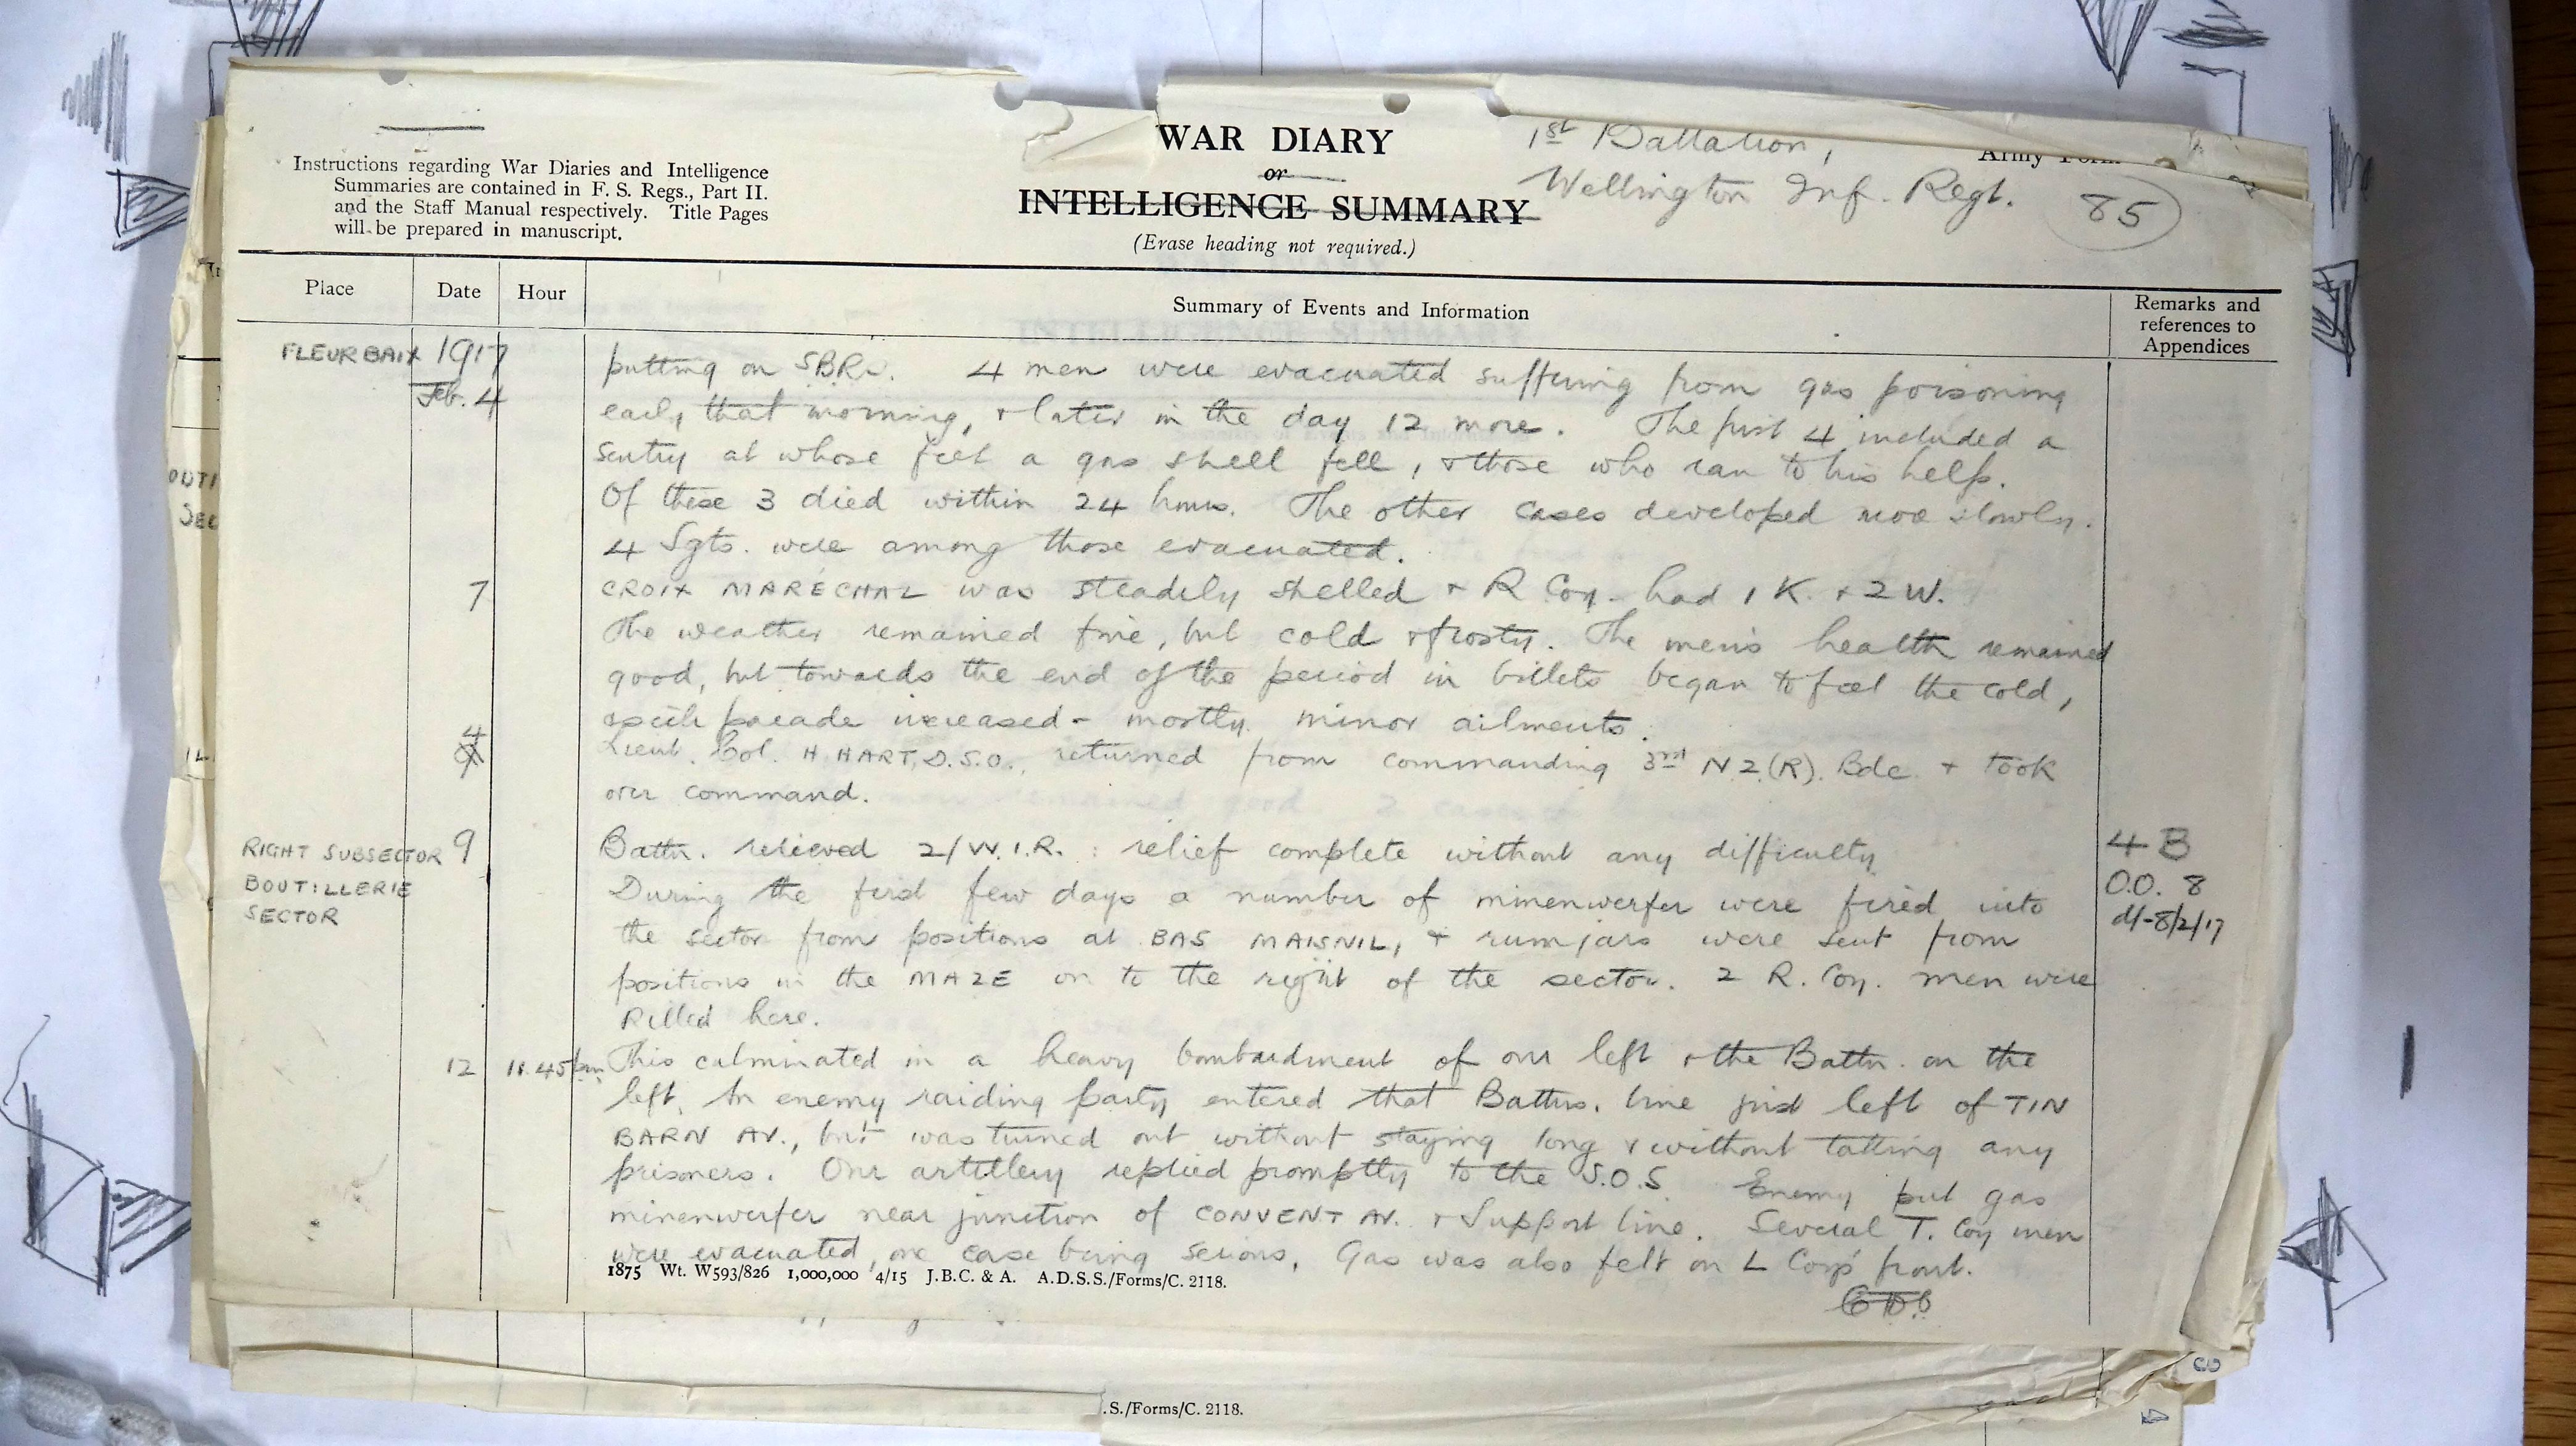 WAR DIARY
or
INTELLIGENCE SUMMARY
(Erase heading not required.)
Instructions regarding War Diaries and Intelligence
Summaries are contained in F. S. Regs., Part II.
and the Staff Manual respectively. Title Pages
will be prepared in manuscript.
1st Battalion,
Wellington Inf. Regt.
Army Form
85
Place
Date
Hour
Summary of Events and Information
Remarks and
references to
Appendices
FLEURBAIX 1917
Feb. 4
putting on SBRs. 4 men were evacuated suffering from gas poisoning
early that morning, & later in the day 12 more. The first 4 included a
sentry at whose feet a gas shell fell, & those who ran to his help.
Of these 3 died within 24 hours. The other cases developed more slowly.
4 Sgts. were among those evacuated.
7 CROIX MARÉCHAL was steadily shelled & R Coy. had 1 K. & 2 W.
The weather remained fine, but cold & frosty. The men's health remained
good, but towards the end of the period in billets began to feel the cold,
& sick parade increased - mostly minor ailments.
4 Lieut. Col. H. HART, D.S.O., returned from commanding 3rd N.Z.(R). Bde. & took
over command.
RIGHT SUBSECTOR 9 Battn. relieved 2/W.I.R. : relief complete without any difficulty
BOUTILLERIE
SECTOR
4 B
O.O. 8
d/-8/2/17
During the first few days a number of minenwerfer were fired into
the sector from positions at BAS MAISNIL, & rum jars were sent from
positions in the MAZE on to the right of the sector. 2 R. Coy. men were
killed here.
12 11.45 pm This culminated in a heavy bombardment of our left & the Battn. on the
left. An enemy raiding party entered that Battns. line just left of TIN
BARN AV., but was turned out without staying long & without taking any
prisoners. Our artillery replied promptly to the S.O.S. Enemy put gas
minenwerfer near junction of CONVENT AV. & Support line. Several T. Coy men
were evacuated, one case being serious. Gas was also felt on L Coys front.
1875 Wt. W593/826 1,000,000 4/15 J.B.C. & A. A.D.S.S./Forms/C. 2118.
.S./Forms/C. 2118.